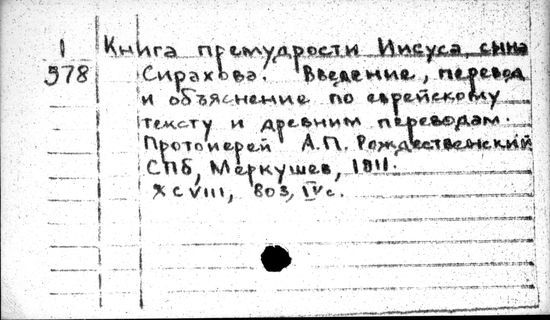 1 Книга премудрости Иисуса, сына
578 Сирахова. Введение, перевод
и объяснение по еврейскому
тексту и древним переводам.
Протоиерей А.П. Рождественский
СПб, Меркушев, 1911.
XCVIII, 803, IV с.